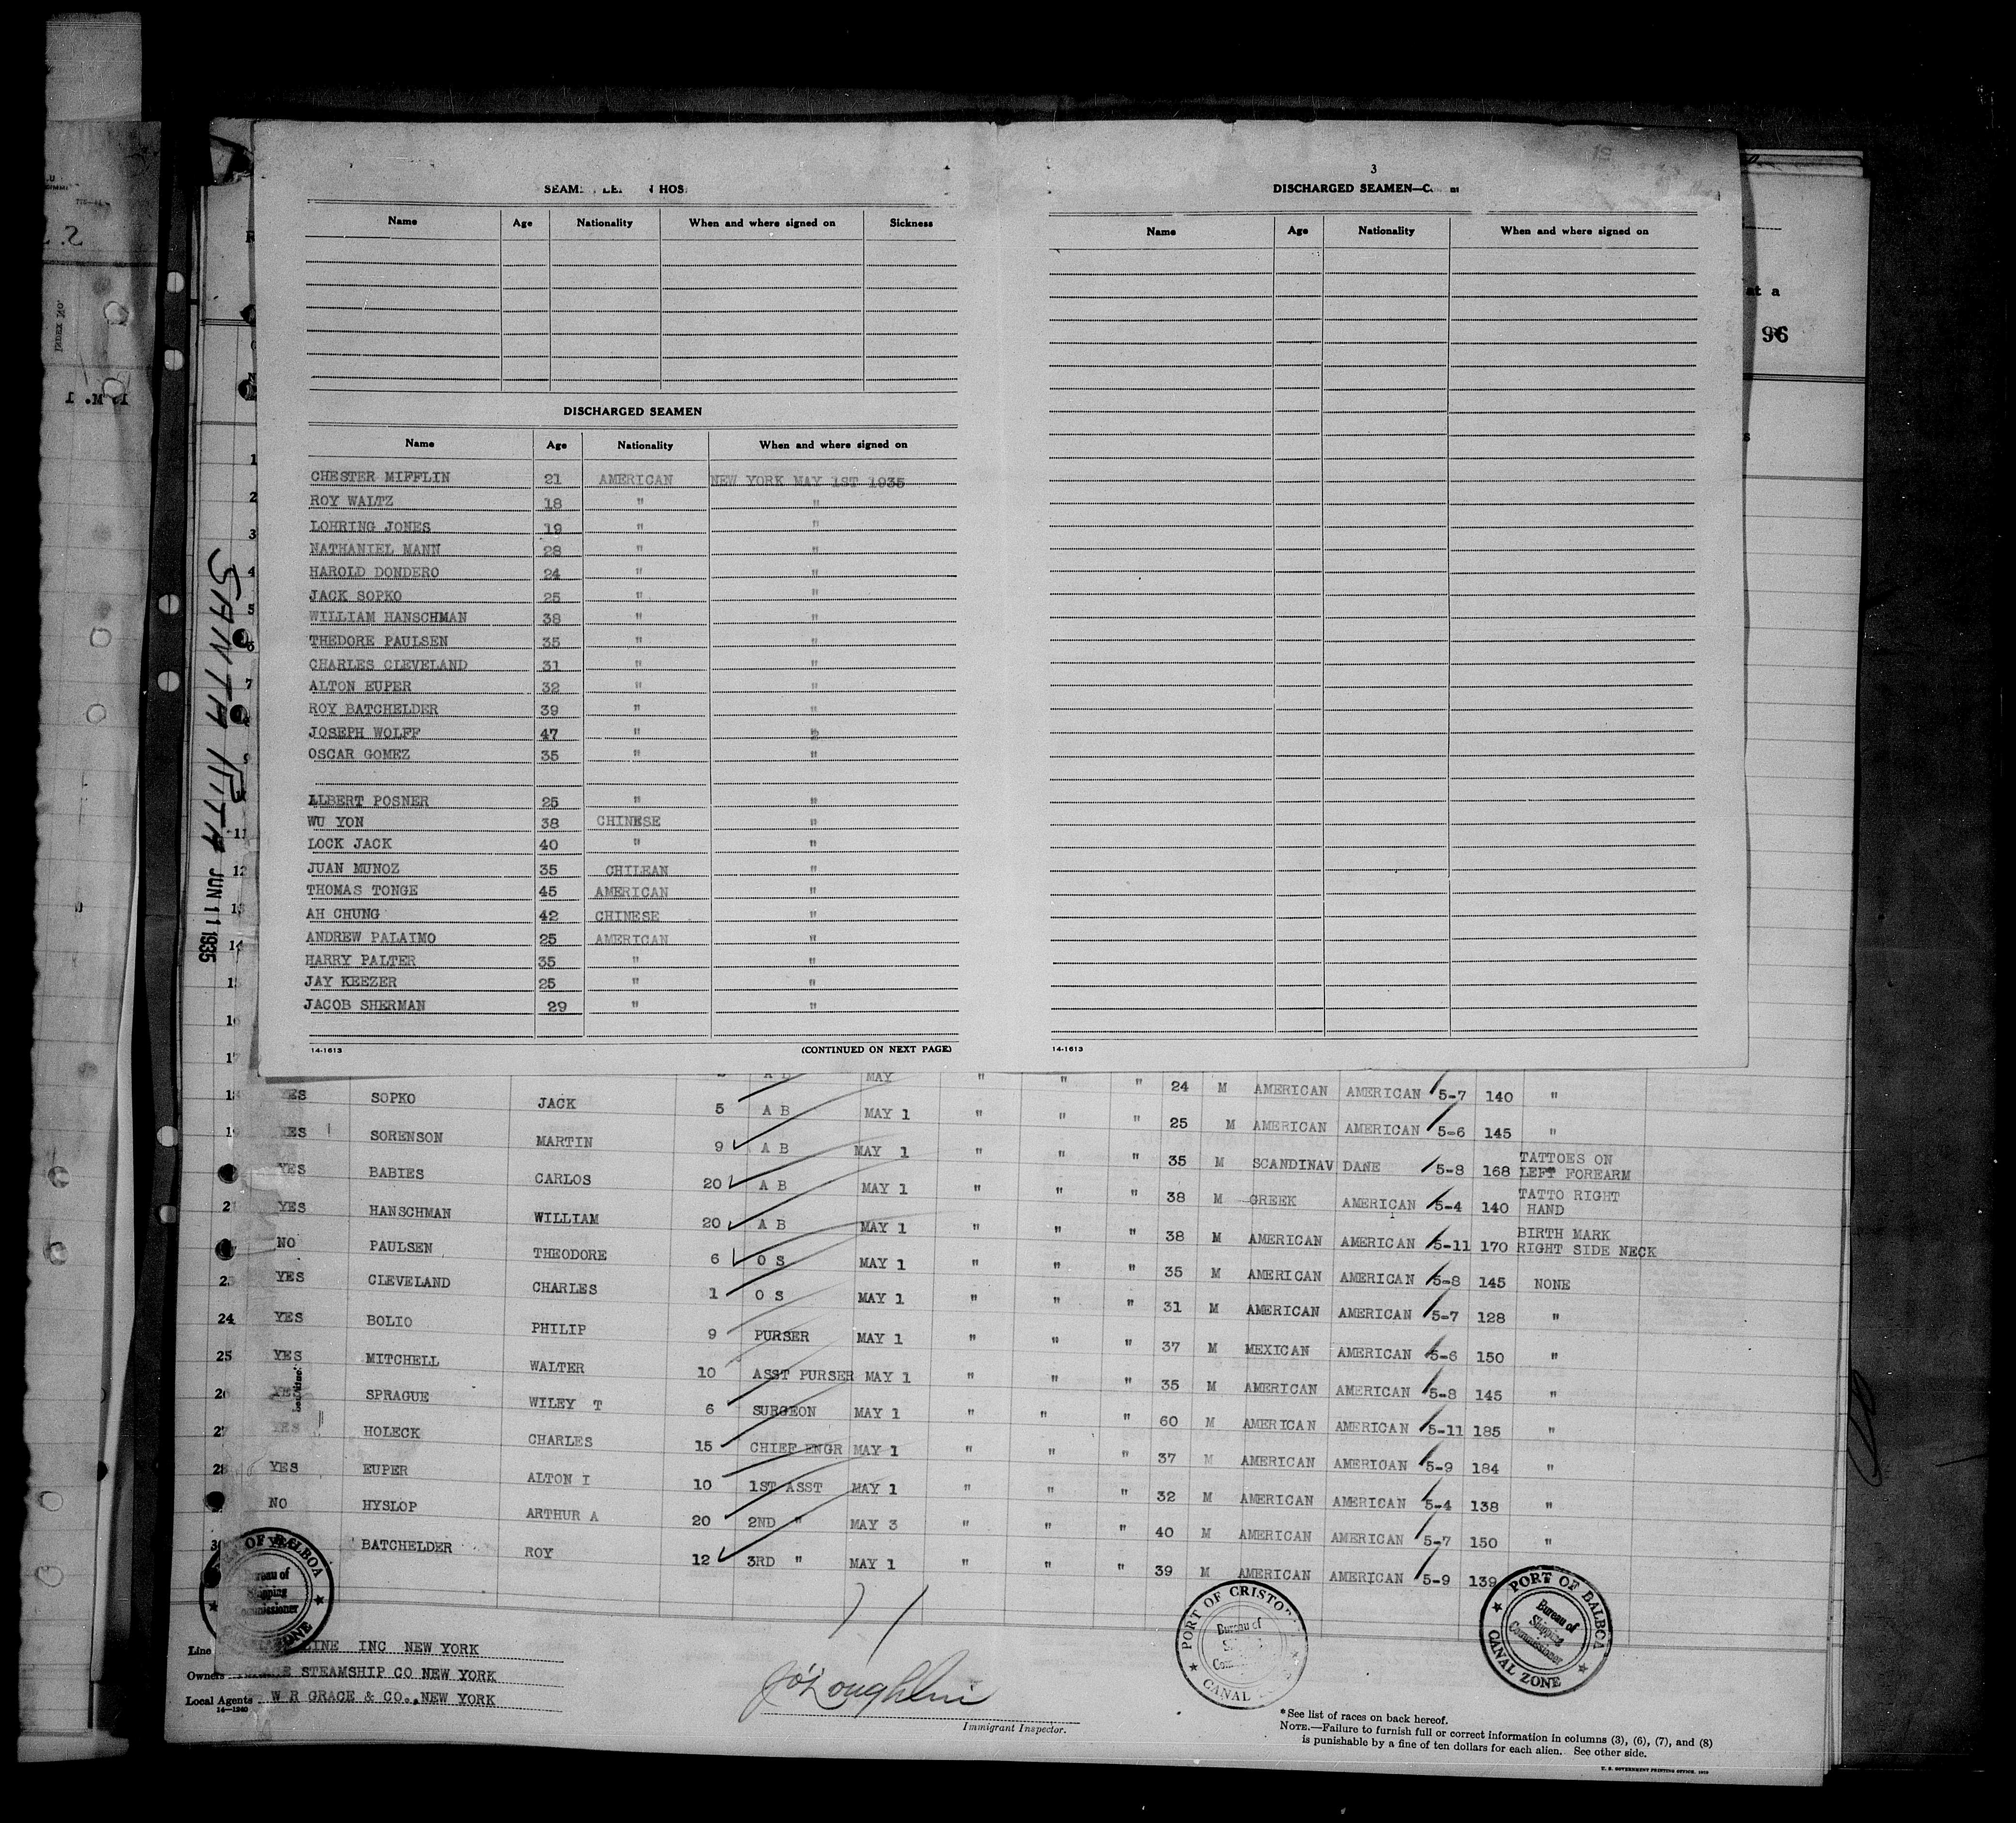 3
DISCHARGED SEAMEN
Name Age Nationality When and where signed on Sickness
Name Age Nationality When and where signed on
at a
96
DISCHARGED SEAMEN
Name Age Nationality When and where signed on
CHESTER MIFFLIN 21 AMERICAN NEW YORK MAY 1ST 1935
ROY WALTZ 18 " "
LOHRING JONES 19 " "
NATHANIEL MANN 28 " "
HAROLD DONDERO 24 " "
JACK SOPKO 25 " "
WILLIAM HANSCHMAN 38 " "
THEDORE PAULSEN 35 " "
CHARLES CLEVELAND 31 " "
ALTON EUPER 32 " "
ROY BATCHELDER 39 " "
JOSEPH WOLFF 47 " "
OSCAR GOMEZ 35 " "
ALBERT POSNER 25 " "
WU YON 38 CHINESE "
LOCK JACK 40 " "
JUAN MUNOZ 35 CHILEAN "
THOMAS TONGE 45 AMERICAN "
AH CHUNG 42 CHINESE "
ANDREW PALAIMO 25 AMERICAN "
HARRY PALTER 35 " "
JAY KEEZER 25 " "
JACOB SHERMAN 29 " "
14-1613 (CONTINUED ON NEXT PAGE)
14-1613
SANTA RITA JUN 11 1935
A B MAY " " " 24 M AMERICAN AMERICAN 5-7 140 "
18 YES SOPKO JACK 5 A B MAY 1 " " " 25 M AMERICAN AMERICAN 5-6 145 "
19 YES SORENSON MARTIN 9 A B MAY 1 " " " 35 M SCANDINAV DANE 5-8 168 TATTOES ON LEFT FOREARM
YES BABIES CARLOS 20 A B MAY 1 " " " 38 M GREEK AMERICAN 5-4 140 TATTO RIGHT HAND
21 YES HANSCHMAN WILLIAM 20 A B MAY 1 " " " 38 M AMERICAN AMERICAN 5-11 170 BIRTH MARK RIGHT SIDE NECK
NO PAULSEN THEODORE 6 O S MAY 1 " " " 35 M AMERICAN AMERICAN 5-8 145 NONE
23 YES CLEVELAND CHARLES 1 O S MAY 1 " " " 31 M AMERICAN AMERICAN 5-7 128 "
24 YES BOLIO PHILIP 9 PURSER MAY 1 " " " 37 M MEXICAN AMERICAN 5-6 150 "
25 YES MITCHELL WALTER 10 ASST PURSER MAY 1 " " " 35 M AMERICAN AMERICAN 5-8 145 "
26 YES SPRAGUE WILEY T 6 SURGEON MAY 1 " " " 60 M AMERICAN AMERICAN 5-11 185 "
27 YES HOLECK CHARLES 15 CHIEF ENGR MAY 1 " " " 37 M AMERICAN AMERICAN 5-9 184 "
28 YES EUPER ALTON I 10 1ST ASST MAY 1 " " " 32 M AMERICAN AMERICAN 5-4 138 "
NO HYSLOP ARTHUR A 20 2ND " MAY 3 " " " 40 M AMERICAN AMERICAN 5-7 150 "
BATCHELDER ROY 12 3RD " MAY 1 " " " 39 M AMERICAN AMERICAN 5-9 139
PORT OF BALBOA Bureau of Shipping Commissioner CANAL ZONE
PORT OF CRISTO Bureau of CANAL
PORT OF BALBOA Bureau of Shipping Commissioner CANAL ZONE
Line LINE INC NEW YORK
Owners STEAMSHIP CO NEW YORK
Local Agents W R GRACE & CO., NEW YORK
14-1240
J O'Loughlin
Immigrant Inspector.
*See list of races on back hereof.
NOTE.—Failure to furnish full or correct information in columns (3), (6), (7), and (8)
is punishable by a fine of ten dollars for each alien. See other side.